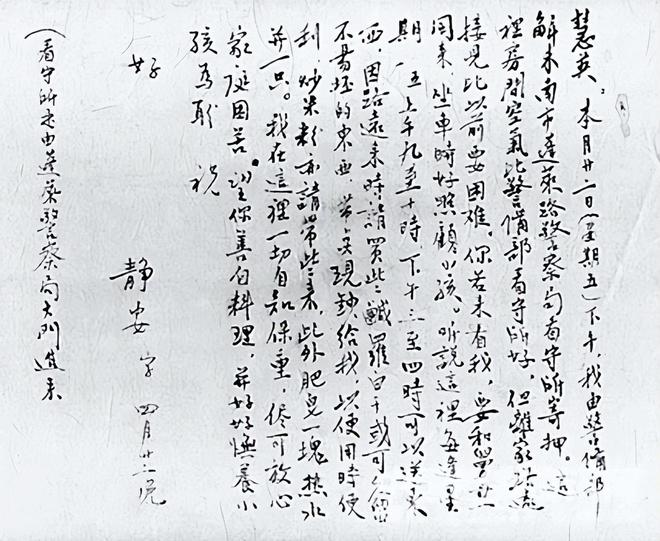 慧英：本月廿二日（星期五）下午，我由警備部
解来南市蓬萊路警察局看守所寄押。這
裡房間空氣比警備部看守所好，但離家路遠
接見比以前要困難。你若来看我，要和
同来，坐車時好照顧小孩。听說這裡每逢星
期一、五上午九至十時，下午三至四時可以送東
西，因路遠来時請買些鹹羅白干或可久留
不易坏的東西，带点現鈔給我，以便用時便
利，炒米粉亦請帶些来，此外肥皂一塊熱水
瓶一只。我在這裡一切自知保重，儘可放心
家庭困苦。望你善自料理，并好好撫養小
孩為盼 祝
好
静安字 四月廿二晚
（看守所亦由蓬萊警察局大門進来